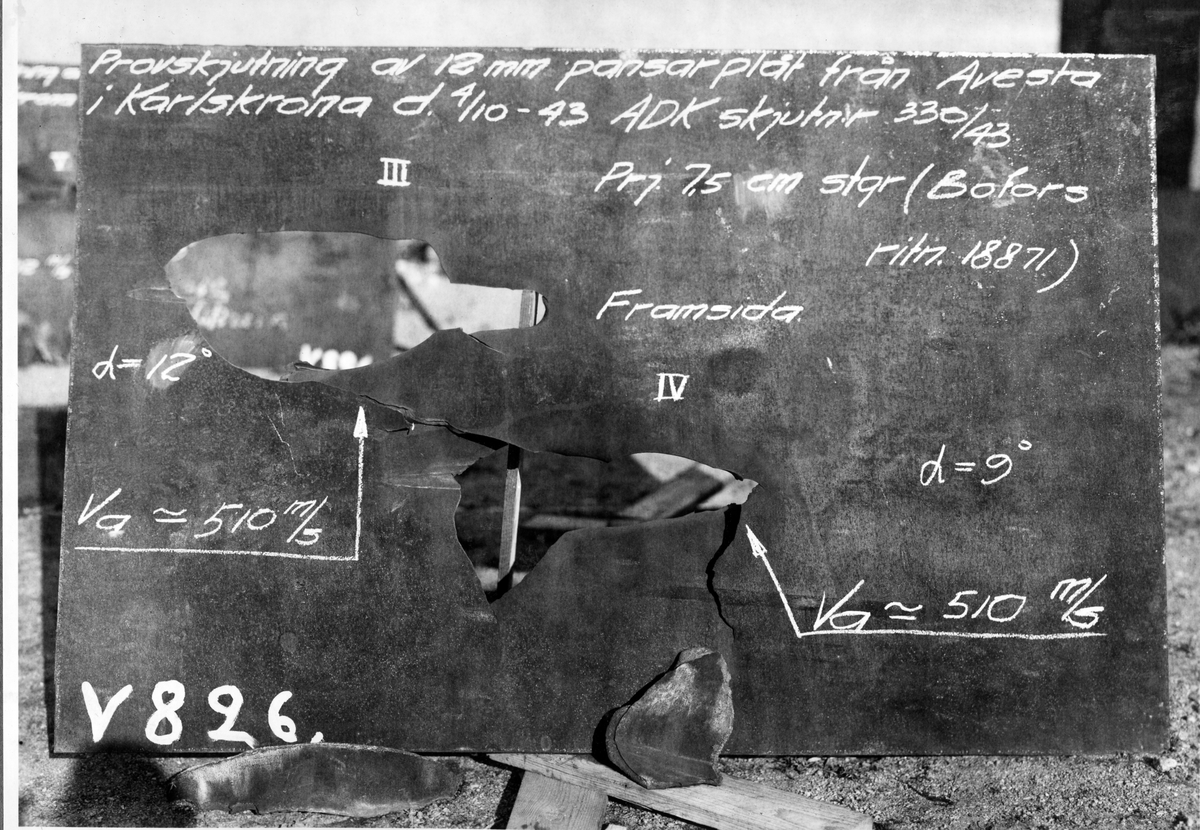 Provskjutning av 12 mm pansarplåt från Avesta
i Karlskrona d. 4/10-43 ADK skjutn:r 330/43
III
Prj. 7,5 cm sfgr (Bofors
ritn. 18871)
Framsida.
α=12°
IV
α=9°
Va ≃ 510 m/s
Va ≃ 510 m/s
V826.